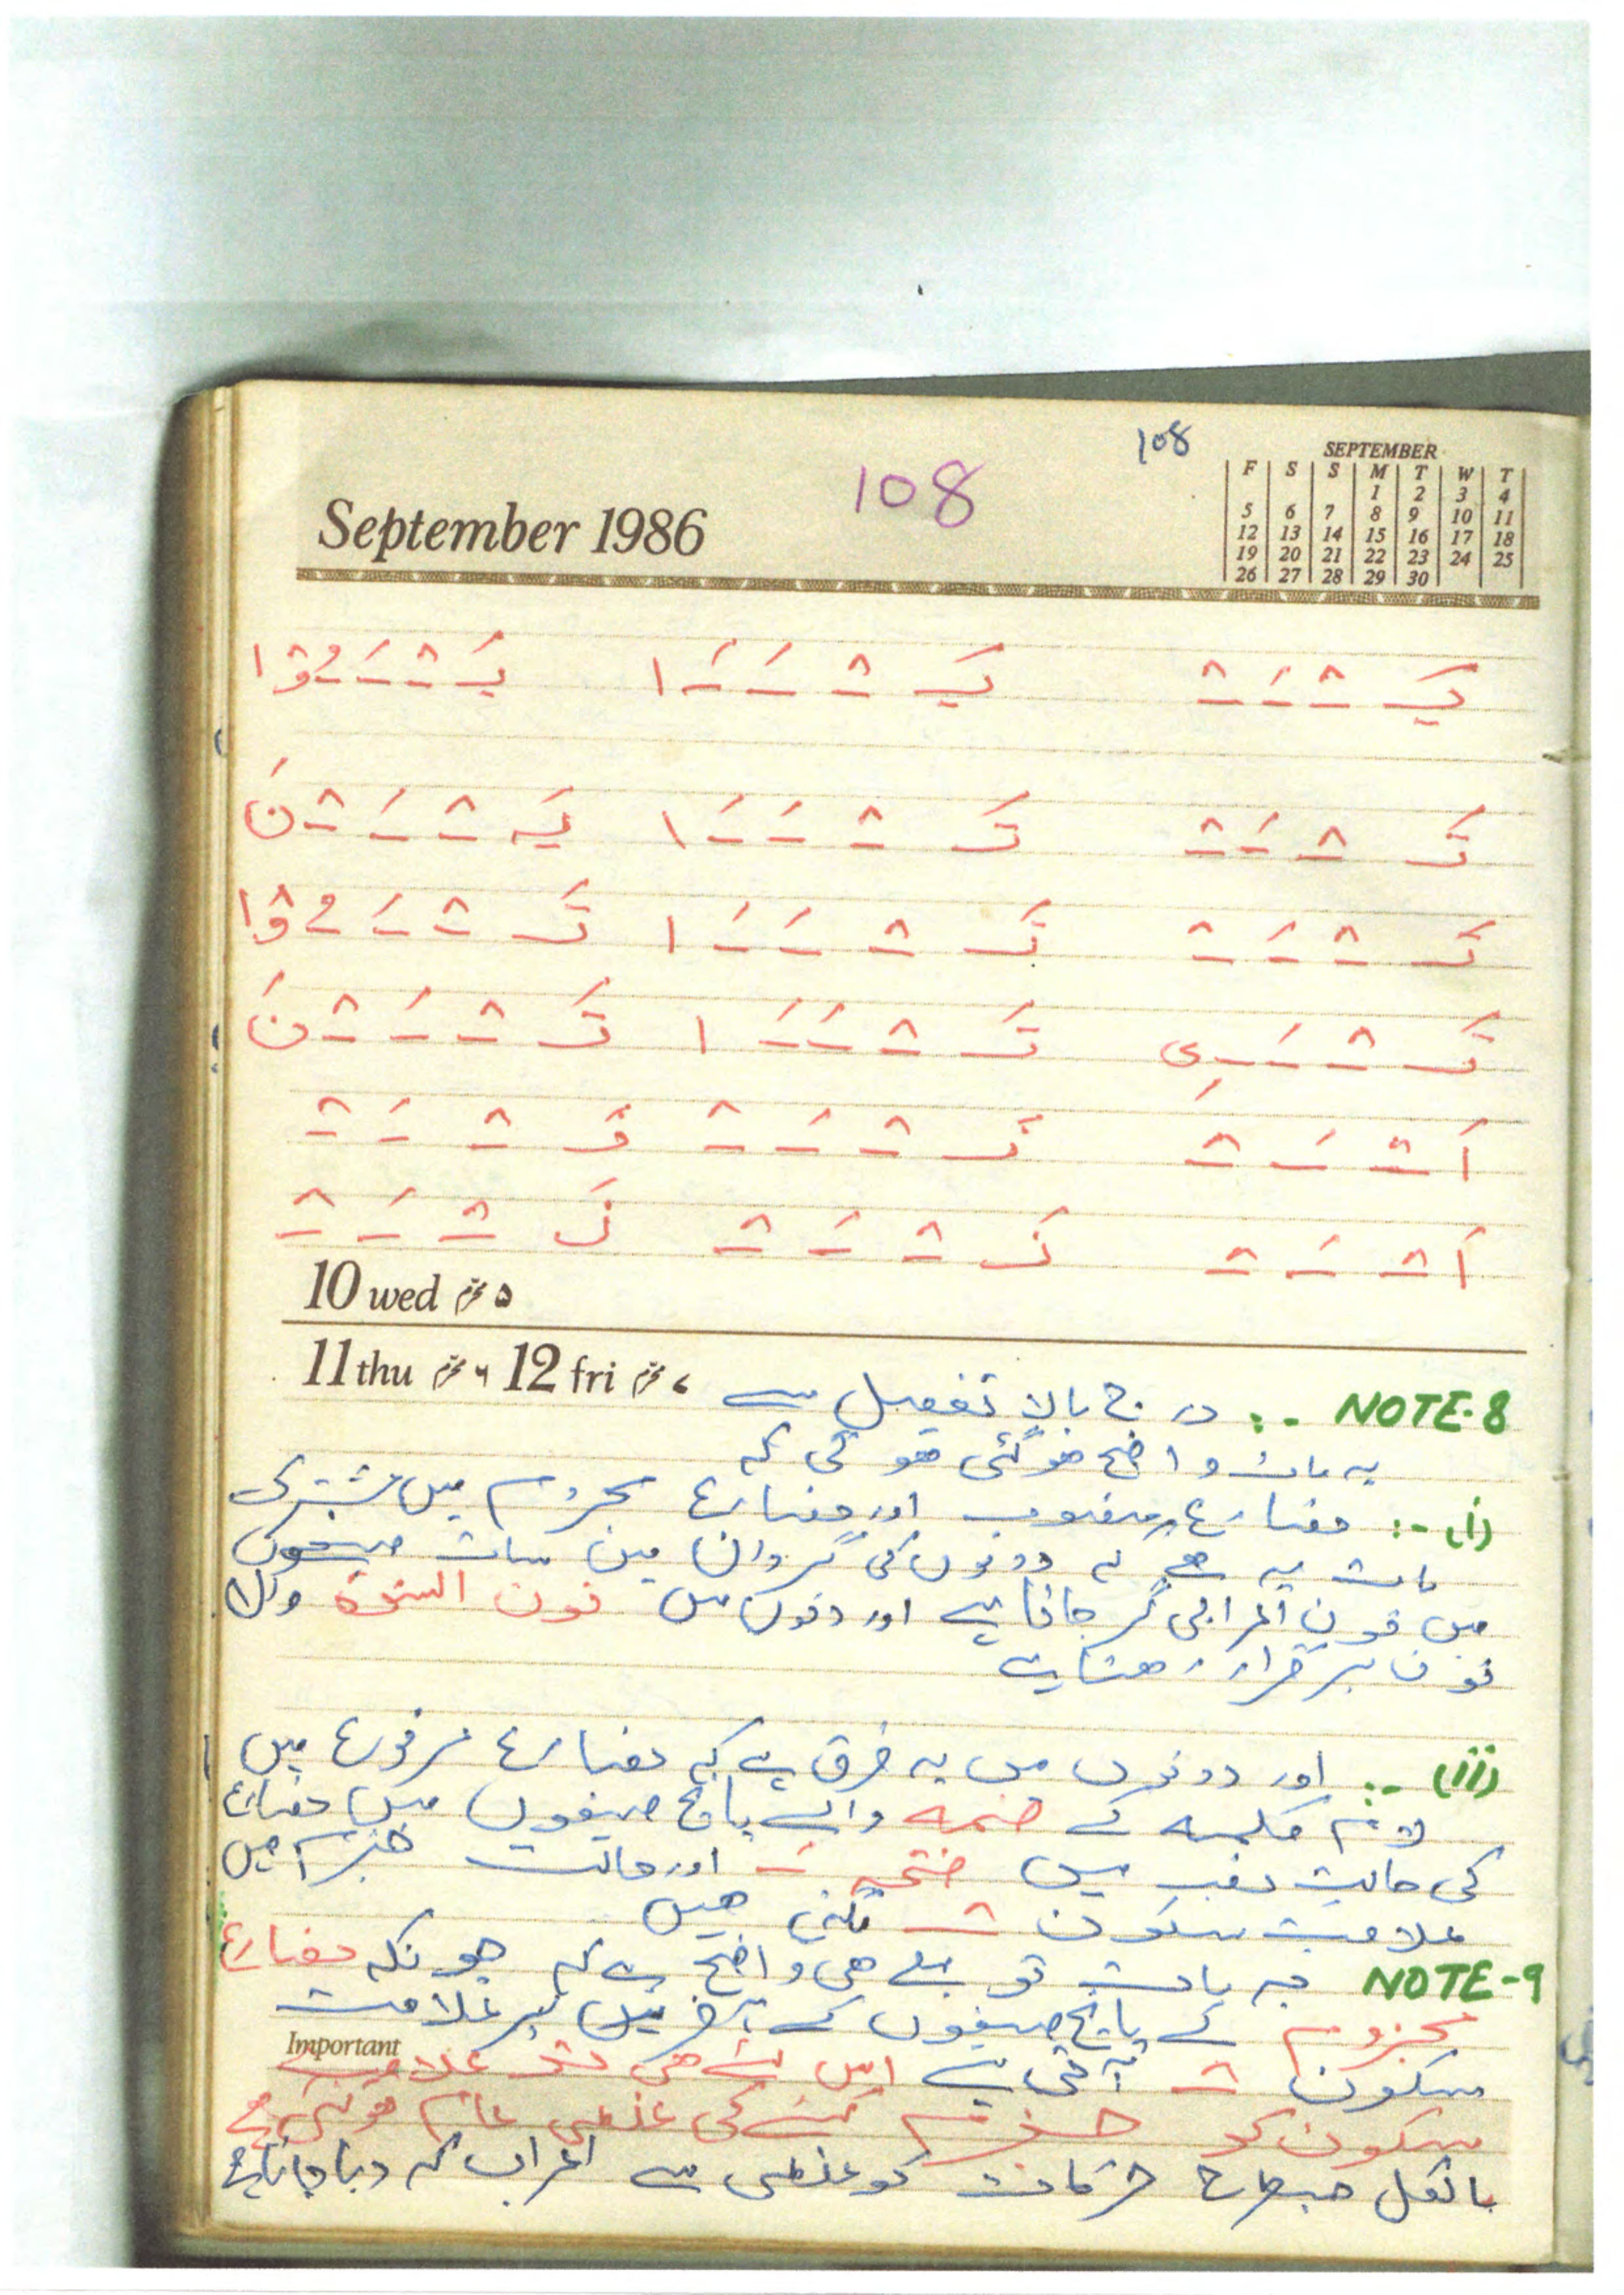 108
108
September 1986
SEPTEMBER
F S S M T W T
1 2 3 4
5 6 7 8 9 10 11
12 13 14 15 16 17 18
19 20 21 22 23 24 25
26 27 28 29 30
يَـ ـْـ ـَـ ـْـ يَـ ـْـ ـَـ ـَـ ا يَـ ـْـ ـَـ ـُـ وْا
تَـ ـْـ ـَـ ـْـ تَـ ـْـ ـَـ ـَـ ا يَـ ـْـ ـَـ ـْـ نَ
تَـ ـْـ ـَـ ـْـ تَـ ـْـ ـَـ ـَـ ا تَـ ـْـ ـَـ ـُـ وْا
تَـ ـْـ ـَـ ـِـ ى تَـ ـْـ ـَـ ـَـ ا تَـ ـْـ ـَـ ـْـ نَ
اَ ـْـ ـَـ ـْـ نَـ ـْـ ـَـ ـْـ نَـ ـْـ ـَـ ـْـ
اَ ـْـ ـَـ ـْـ نَـ ـْـ ـَـ ـْـ نَـ ـْـ ـَـ ـْـ
10 wed ۵ محرم
11 thu ۶ محرم 12 fri ۷ محرم
NOTE-8 :- درج بالا تفصیل سے
یہ بات واضح ہوگئی ہوگی کہ
(i) :- مضارع منصوب اور مضارع مجزوم میں مشترک
بات یہ ہے کہ دونوں کی گردان میں سات صیغوں
میں نون اعرابی گر جاتا ہے اور دونوں میں نون النسوة والا
نون برقرار رہتا ہے
(ii) :- اور دونوں میں یہ فرق ہے کہ مضارع مرفوع میں
لام کلمہ کے ضمہ والے پانچ صیغوں میں مضارع
کی حالت نصب میں فتحہ ـَـ اور حالت جزم میں
علامت سکون ـْـ لگتی ہیں
NOTE-9 یہ بات تو پہلے ہی واضح ہے کہ چونکہ مضارع
مجزوم کے پانچ صیغوں کے آخر میں پر علامت
Important
سکون ـْـ آتی ہے اس لئے ہی تو علامت
سکون کو جزم کہنے کی غلطی عام ہوگئی ہے
بالکل جسطرح حرکات کو غلطی سے اعراب کہہ دیا جاتا ہے